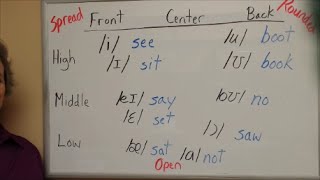 Spread Front Center Back Rounded
High /i/ see /u/ boot
/ɪ/ sit /ʊ/ book
Middle /eɪ/ say /oʊ/ no
/ɛ/ set
/ɔ/ saw
Low /æ/ sat /ɑ/ not
Open